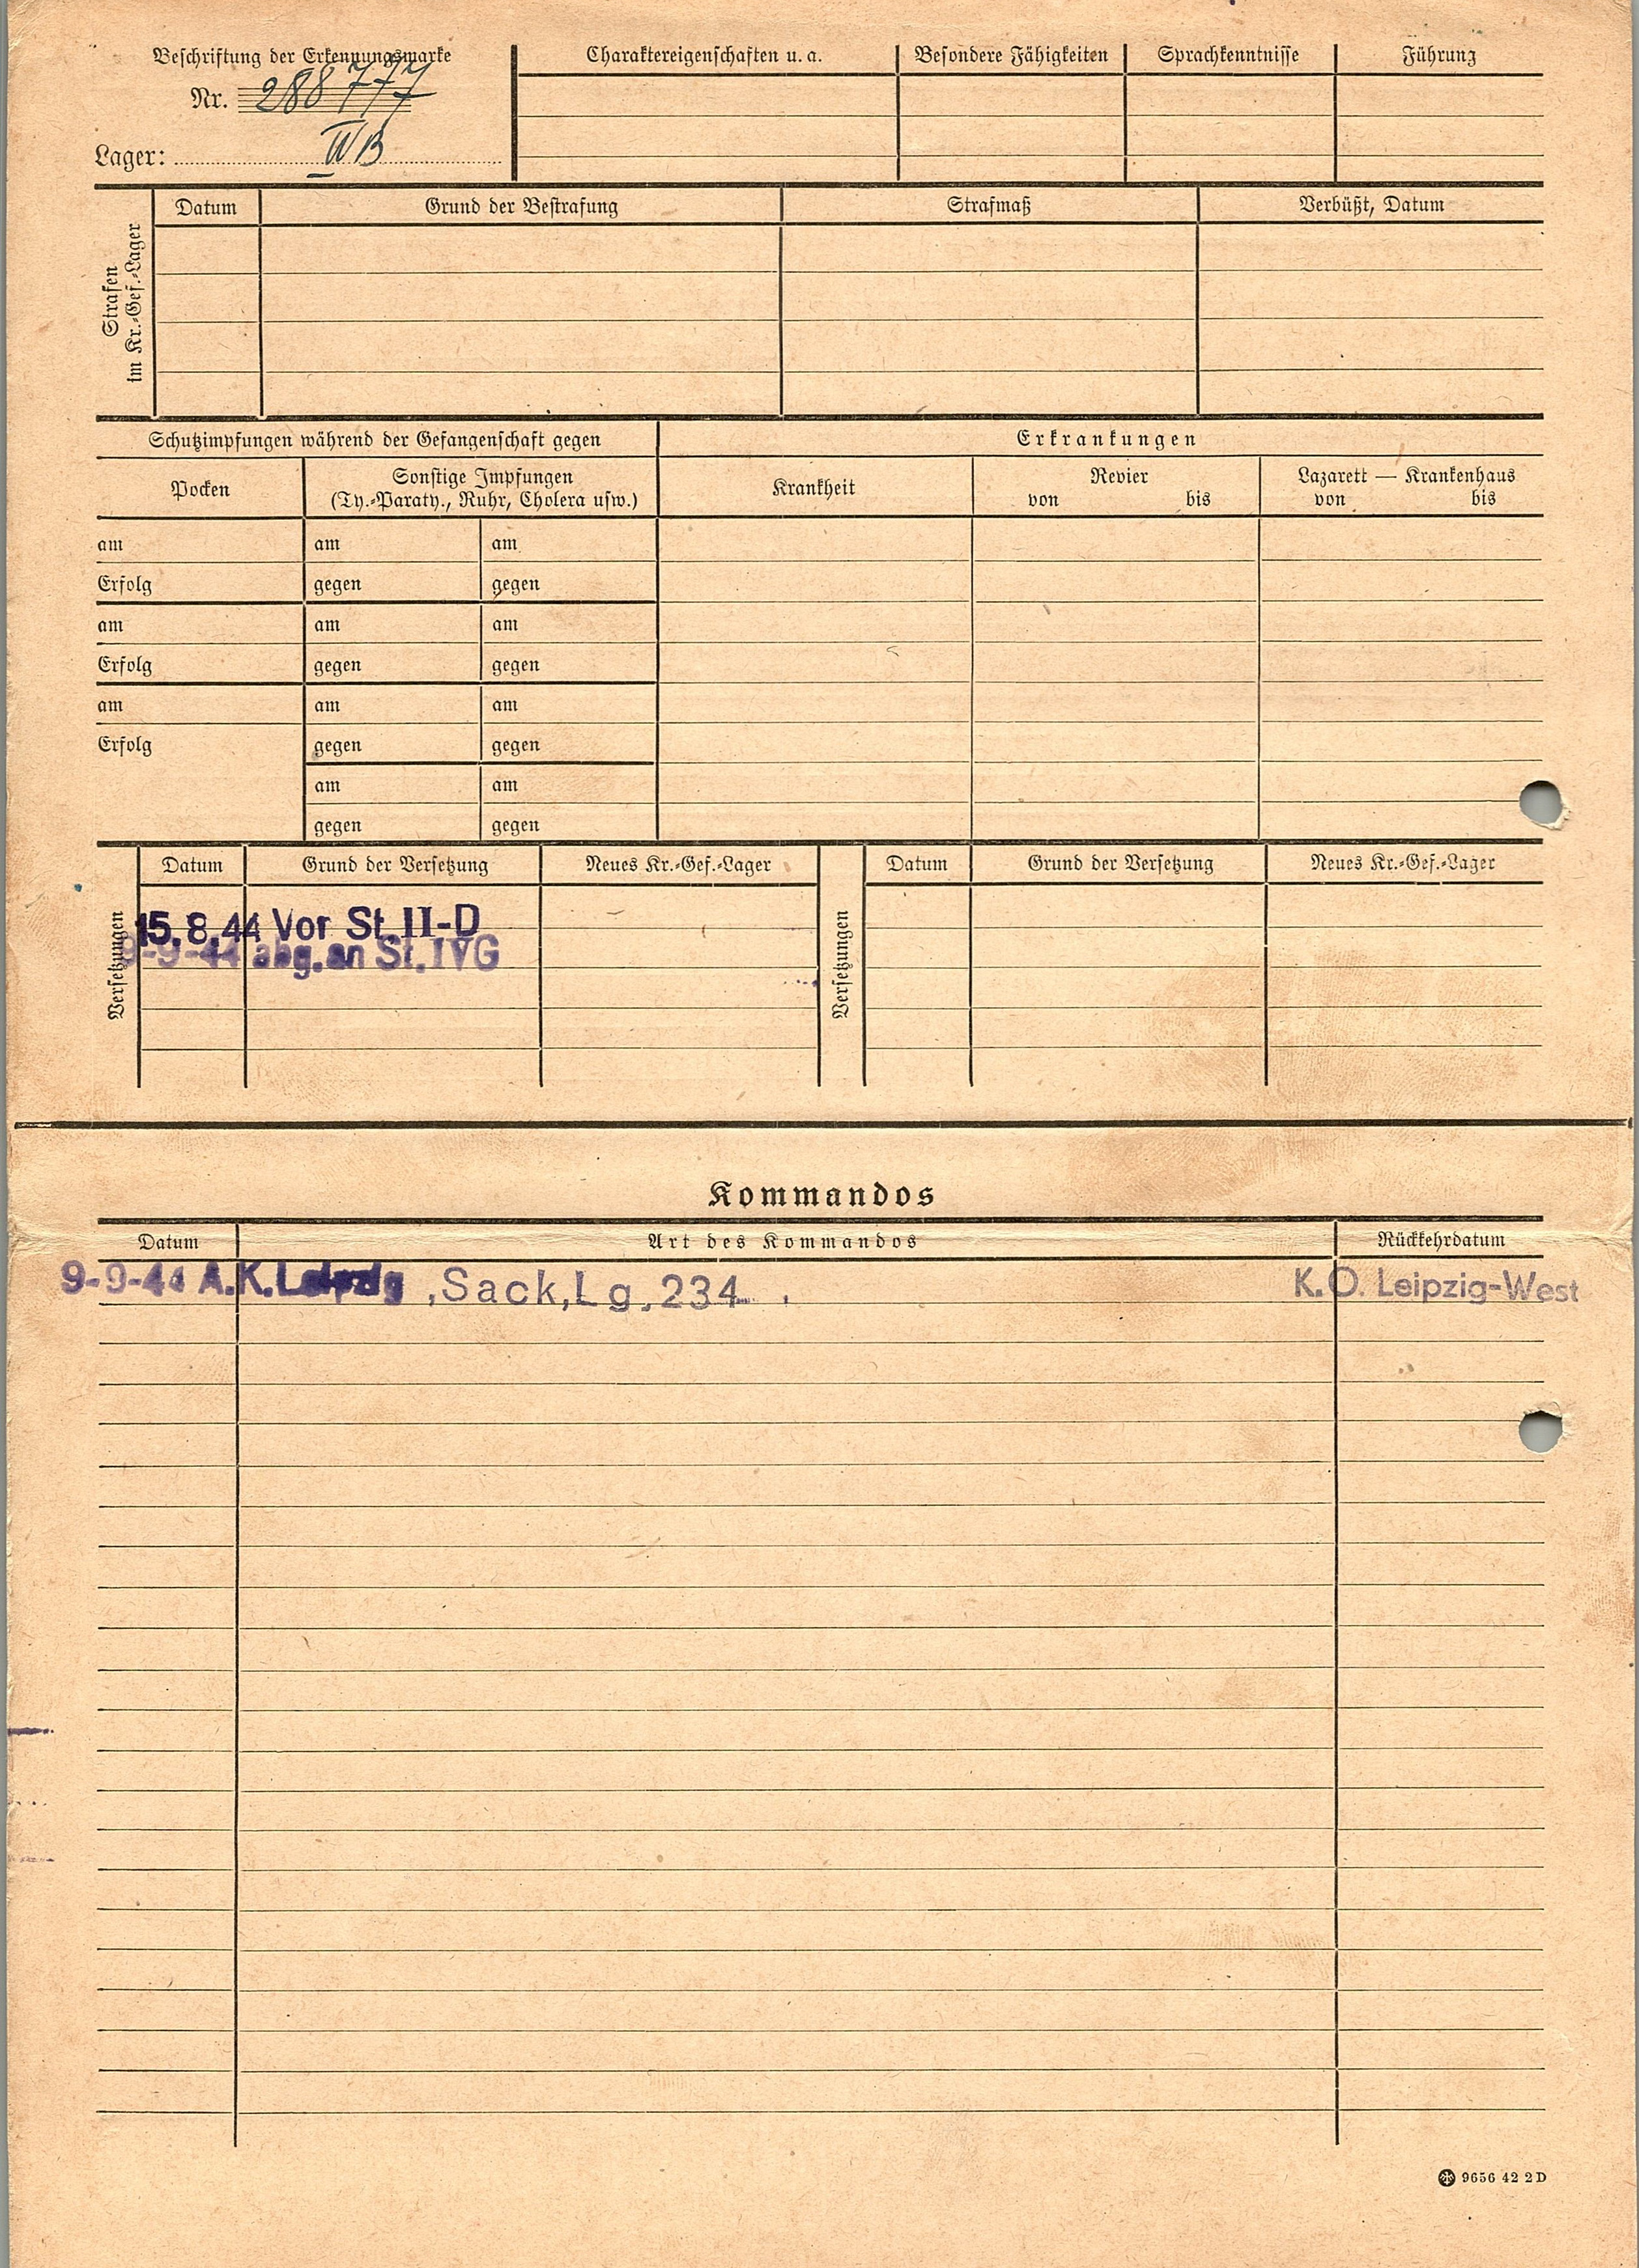 Beschriftung der Erkennungsmarke
Nr. 288777
Lager: IV B
Charaktereigenschaften u. a.
Besondere Fähigkeiten
Sprachkenntnisse
Führung
Strafen im Kr.-Gef.-Lager
Datum
Grund der Bestrafung
Strafmaß
Verbüßt, Datum
Schutzimpfungen während der Gefangenschaft gegen
Erkrankungen
Pocken
Sonstige Impfungen
(Ty.-Paraty., Ruhr, Cholera usw.)
Krankheit
Revier
von bis
Lazarett — Krankenhaus
von bis
am am am
Erfolg gegen gegen
am am am
Erfolg gegen gegen
am am am
Erfolg gegen gegen
am am
gegen gegen
Versetzungen
Datum Grund der Versetzung Neues Kr.-Gef.-Lager
15.8.44 Vor St. II-D
9-9-44 abg. an St. IVG
Versetzungen
Datum Grund der Versetzung Neues Kr.-Gef.-Lager
Kommandos
Datum Art des Kommandos Rückkehrdatum
9-9-44 A.K. Leipzig ,Sack,Lg.234 K.O. Leipzig-West
9656 42 2D